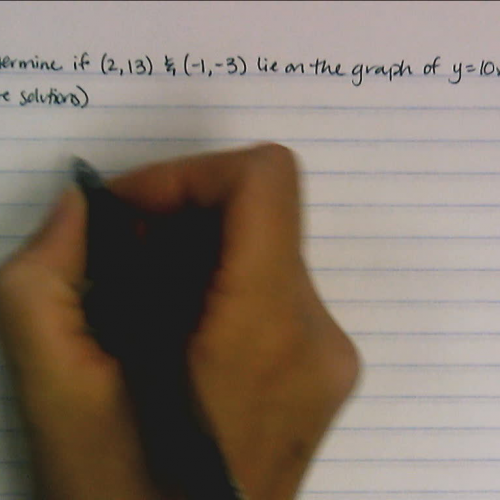 ermine if (2,13) & (-1,-3) lie on the graph of y=10
e solutions)